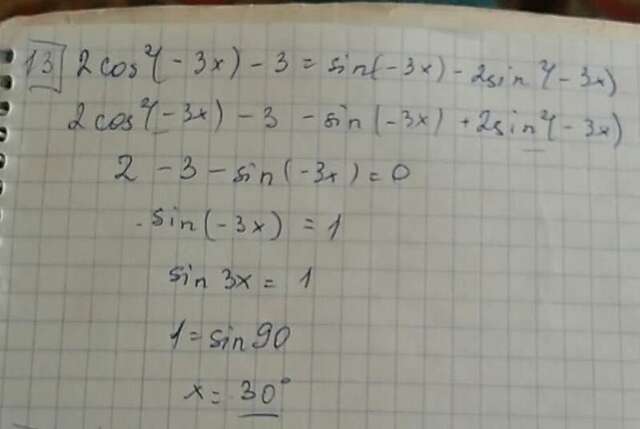 13] 2cos²(-3x) - 3 = sin(-3x) - 2sin²(-3x)
2cos²(-3x) - 3 - sin(-3x) + 2sin²(-3x)
2 - 3 - sin(-3x) = 0
-sin(-3x) = 1
sin 3x = 1
1 = sin 90
x = 30°